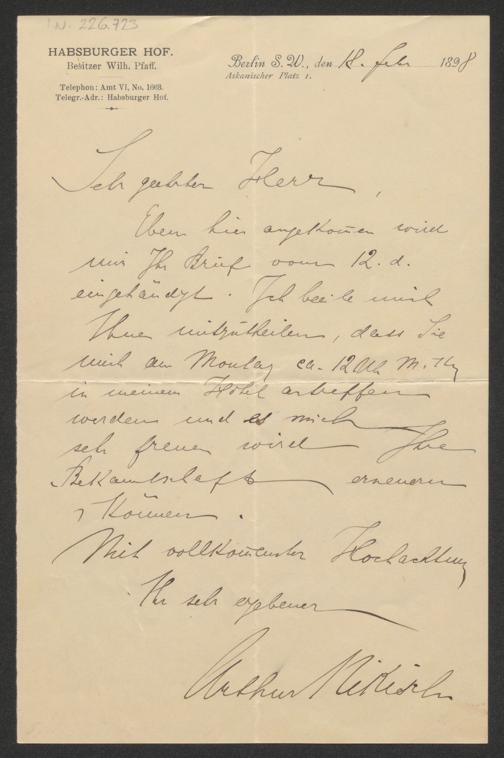 I.N. 226.723
HABSBURGER HOF.
Besitzer Wilh. Pfaff.
Telephon: Amt VI, No. 1668.
Telegr.-Adr.: Habsburger Hof.
Berlin S.W., den 18. Feb 1898
Askanischer Platz 1.
Sehr geehrter Herr,
Eben hier angekom̅en wird
mir Ihr Brief vom 12. d.
eingehändigt. Ich beeile mich
Ihnen mitzutheilen, dass Sie
mich am Montag ca. 12 Uhr Mittg
in meinem Hôtel antreffen
werden und es mich
sehr freuen wird Ihre
Bekanntschaft erneuern
z können.
Mit vollkom̅enster Hochachtung
Ihr sehr ergebener
Arthur Nikisch